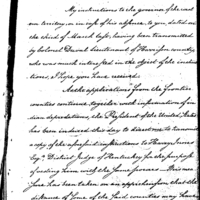 My instructions to the governor of the west
ern territory, or in case of his absence, to you, dated on
the third of March last, having been transmitted
by Colonel Duval Lieutenant of Harrison county
who was much interested in the object of the instruc
tions, I hope you have received.
As the applications from the frontier
counties continue, together with information of in
dian depredations, the President of the United States
has been induced this day to direct me to transmit
a copy of the aforesaid instructions to Harry Innes
Esqr. District Judge of Kentucky for the purpose
of vesting him with the same powers - This mea
sure has been taken on an apprehension that the
distance of some of the said counties may have